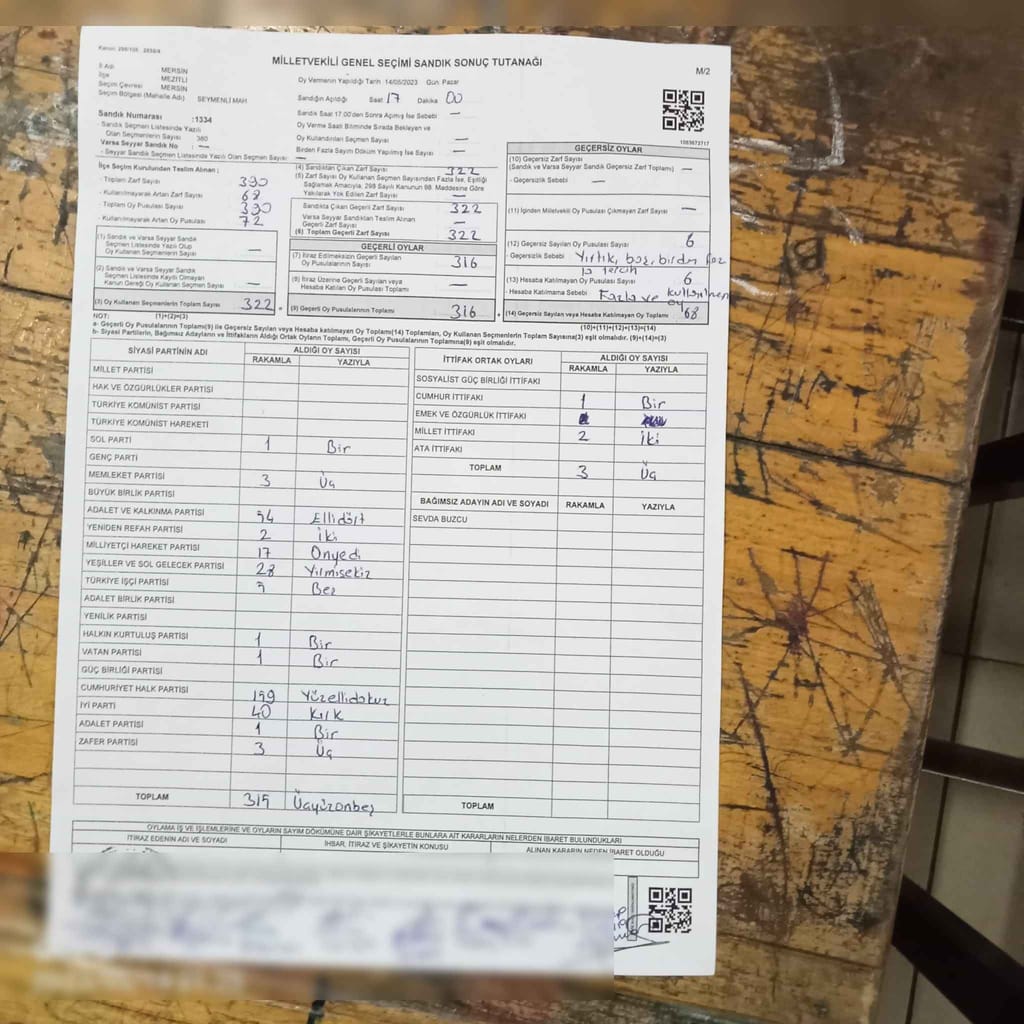 MİLLETVEKİLİ GENEL SEÇİMİ SANDIK SONUÇ TUTANAĞI
M/2
İl Adı MERSİN
İlçe MEZİTLİ
Seçim Çevresi MERSİN
Seçim Bölgesi (Mahalle Adı) SEYMENLİ MAH
Oy Vermenin Yapıldığı Tarih :14/05/2023 Gün Pazar
Sandığın Açıldığı Saat 17 Dakika 00
Sandık Saat 17.00'den Sonra Açılmış İse Sebebi —
Oy Verme Saati Bitiminde Sırada Bekleyen ve
Oy Kullandırılan Seçmen Sayısı —
Birden Fazla Sayım Döküm Yapılmış İse Sayısı —
Sandık Numarası :1334
- Sandık Seçmen Listesinde Yazılı
Olan Seçmenlerin Sayısı 380
Varsa Seyyar Sandık No —
- Seyyar Sandık Seçmen Listesinde Yazılı Olan Seçmen Sayısı: —
İlçe Seçim Kurulundan Teslim Alınan :
- Toplam Zarf Sayısı 390
- Kullanılmayarak Artan Zarf Sayısı 68
- Toplam Oy Pusulası Sayısı 390
- Kullanılmayarak Artan Oy Pusulası 72
(1) Sandık ve Varsa Seyyar Sandık
Seçmen Listesinde Yazılı Olup
Oy Kullanan Seçmenlerin Sayısı —
(2) Sandık ve Varsa Seyyar Sandık
Seçmen Listesinde Kayıtlı Olmayan
Kanun Gereği Oy Kullanan Seçmen Sayısı —
(3) Oy Kullanan Seçmenlerin Toplam Sayısı 322
(4) Sandıktan Çıkan Zarf Sayısı 322
(5) Zarf Sayısı Oy Kullanan Seçmen Sayısından Fazla İse, Eşitliği
Sağlamak Amacıyla, 298 Sayılı Kanunun 98. Maddesine Göre
Yakılarak Yok Edilen Zarf Sayısı —
Sandıkta Çıkan Geçerli Zarf Sayısı 322
Varsa Seyyar Sandıktan Teslim Alınan
Geçerli Zarf Sayısı —
(6) Toplam Geçerli Zarf Sayısı 322
GEÇERLİ OYLAR
(7) İtiraz Edilmeksizin Geçerli Sayılan
Oy Pusulalarının Sayısı 316
(8) İtiraz Üzerine Geçerli Sayılan veya
Hesaba Katılan Oy Pusulası Toplamı —
(9) Geçerli Oy Pusulalarının Toplamı 316
GEÇERSİZ OYLAR
(10) Geçersiz Zarf Sayısı
(Sandık ve Varsa Seyyar Sandık Geçersiz Zarf Toplamı) —
- Geçersizlik Sebebi —
(11) İçinden Milletvekili Oy Pusulası Çıkmayan Zarf Sayısı —
(12) Geçersiz Sayılan Oy Pusulası Sayısı 6
- Geçersizlik Sebebi Yırtık, boş, birden faz
la tercih
(13) Hesaba Katılmayan Oy Pusulası Sayısı 6
- Hesaba Katılmama Sebebi Fazla ve kullanılmen
oy
(14) Geçersiz Sayılan veya Hesaba Katılmayan Oy Toplamı 68
NOT: (1)+(2)=(3) (10)+(11)+(12)+(13)=(14)
a- Geçerli Oy Pusulalarının Toplamı(9) ile Geçersiz Sayılan veya Hesaba katılmayan Oy Toplamı(14) Toplamları, Oy Kullanan Seçmenlerin Toplam Sayısına(3) eşit olmalıdır. (9)+(14)=(3)
b- Siyasi Partilerin, Bağımsız Adayların ve İttifakların Aldığı Ortak Oyların Toplamı, Geçerli Oy Pusulalarının Toplamına(9) eşit olmalıdır.
SİYASİ PARTİNİN ADI ALDIĞI OY SAYISI
RAKAMLA YAZIYLA
MİLLET PARTİSİ
HAK VE ÖZGÜRLÜKLER PARTİSİ
TÜRKİYE KOMÜNİST PARTİSİ
TÜRKİYE KOMÜNİST HAREKETİ
SOL PARTİ 1 Bir
GENÇ PARTİ
MEMLEKET PARTİSİ 3 Üç
BÜYÜK BİRLİK PARTİSİ
ADALET VE KALKINMA PARTİSİ 54 Ellidört
YENİDEN REFAH PARTİSİ 2 İki
MİLLİYETÇİ HAREKET PARTİSİ 17 Onyedi
YEŞİLLER VE SOL GELECEK PARTİSİ 28 Yirmisekiz
TÜRKİYE İŞÇİ PARTİSİ 5 Beş
ADALET BİRLİK PARTİSİ
YENİLİK PARTİSİ
HALKIN KURTULUŞ PARTİSİ 1 Bir
VATAN PARTİSİ 1 Bir
GÜÇ BİRLİĞİ PARTİSİ
CUMHURİYET HALK PARTİSİ 159 Yüzellidokuz
İYİ PARTİ 40 Kırk
ADALET PARTİSİ 1 Bir
ZAFER PARTİSİ 3 Üç
TOPLAM 315 Üçyüzonbeş
İTTİFAK ORTAK OYLARI ALDIĞI OY SAYISI
RAKAMLA YAZIYLA
SOSYALİST GÜÇ BİRLİĞİ İTTİFAKI
CUMHUR İTTİFAKI 1 Bir
EMEK VE ÖZGÜRLÜK İTTİFAKI
MİLLET İTTİFAKI 2 İki
ATA İTTİFAKI
TOPLAM 3 Üç
BAĞIMSIZ ADAYIN ADI VE SOYADI RAKAMLA YAZIYLA
SEVDA BUZCU
TOPLAM
OYLAMA İŞ VE İŞLEMLERİNE VE OYLARIN SAYIM DÖKÜMÜNE DAİR ŞİKAYETLERLE BUNLARA AİT KARARLARIN NELERDEN İBARET BULUNDUKLARI
İTİRAZ EDENİN ADI VE SOYADI İHBAR, İTİRAZ VE ŞİKAYETİN KONUSU ALINAN KARARIN NEDEN İBARET OLDUĞU